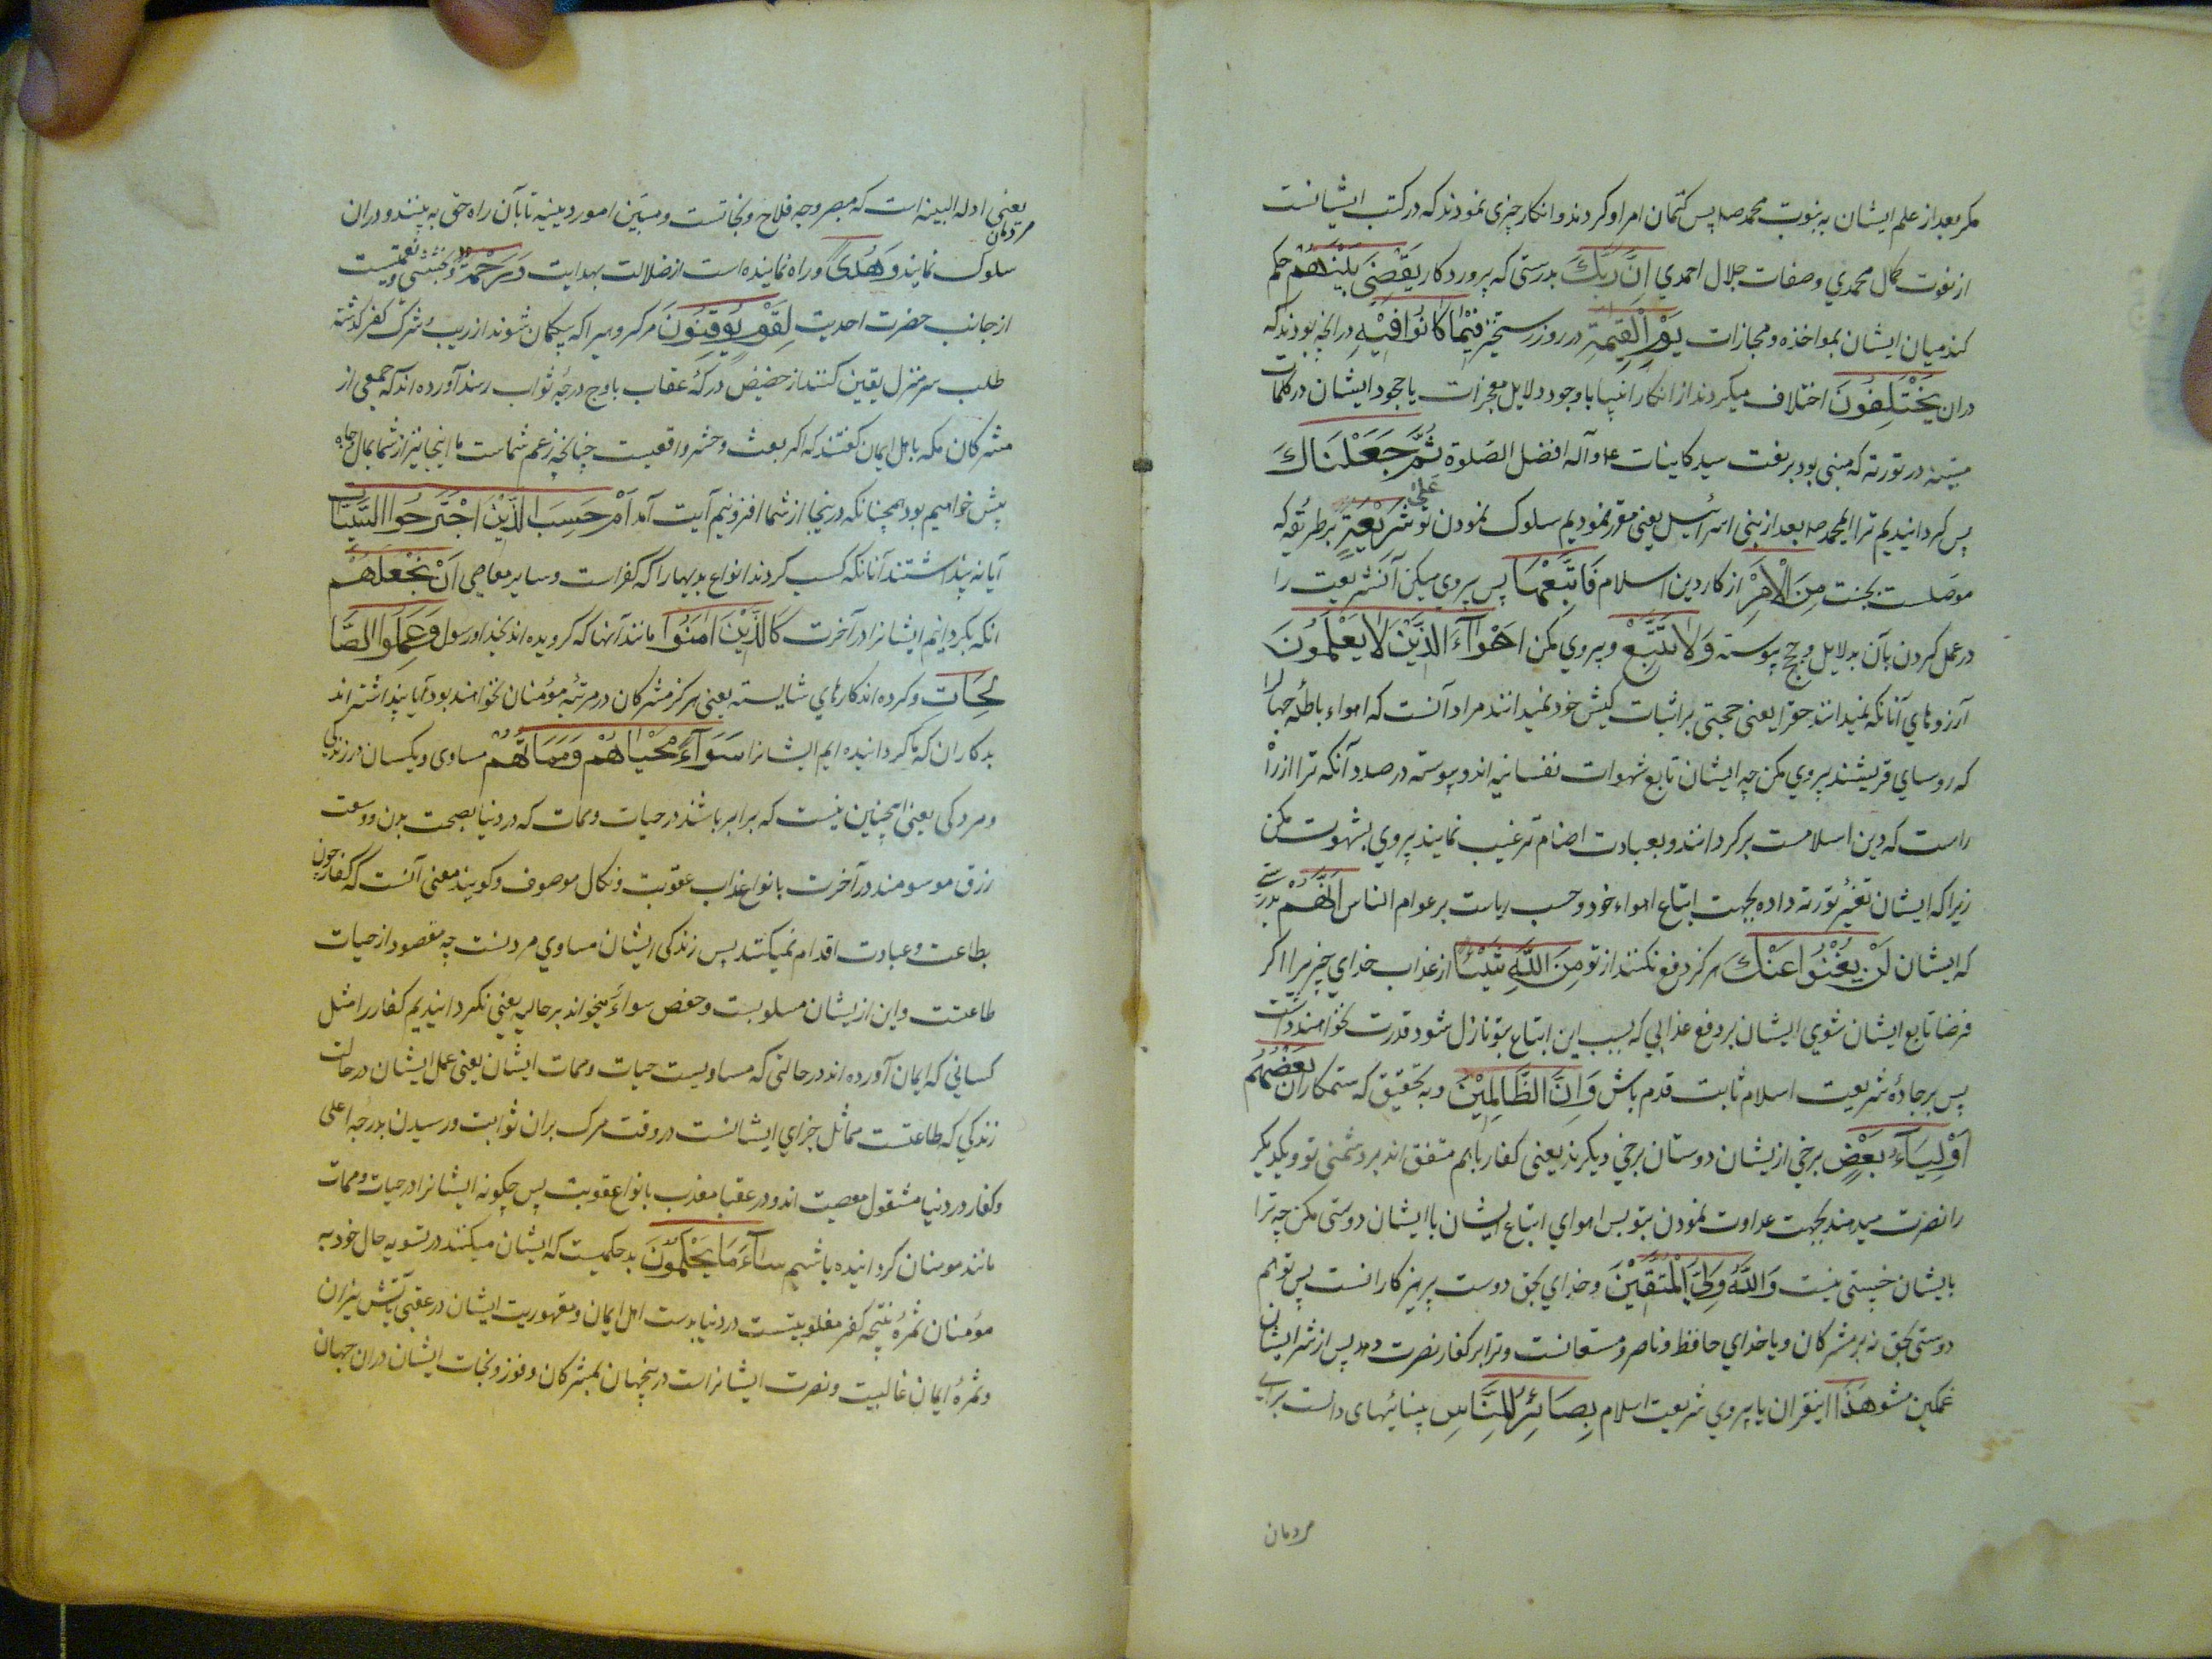 مكر بعد از علم ایشان به نبوت محمد صم پس كتمان امر او كردند و انكار چیزی نمودند كه در كتب ایشانست
از نعوت كمال محمدي و صفات جلال احمدي اِنَّ رَبَّكَ بدرستی كه پروردكار یَقْضِیْ بَیْنَهُمْ حكم
كند میان ایشان بمواخذه و مجازات یَوْمَ الْقِیٰمَةِ در روز رستخیز فِیْمَا كَانُوْا فِیْهِ در انچه بودند كه
دران یَخْتَلِفُوْنَ اختلاف میكردند از انكار انبیا با وجود دلایل معجزات یا جحود ایشان در كلمات
مبینه در تورته كه مبنی بود بر نعت سید كاینات ع م و آله افضل الصّلوة ثُمَّ جَعَلْنَاكَ
پس كردانیدیم ترا ایمحمد صم بعد از بنی اسرائیل یعنی مقرر نمودیم سلوك نمودن تو عَلٰی شَرِیْعَةٍ بر طریقۀ كه
موصلست بجنت مِنَ الْاَمْرِ از كار دین اسلام فَاتَّبِعْهَا پس پیروي میكن آنشریعت را
در عمل كردن بآن بدلایل و حجج پیوسته وَلَا تَتَّبِعْ و پیروي مكن اَهْوَآءَ الَّذِیْنَ لَا یَعْلَمُوْنَ
آرزوهاي آنانكه نمیدانند حق را یعنی حجتی بر اثبات كیش خود نمیدانند مراد آنست كه اهواء باطلۀ جهال را
كه روساي قریشند پیروي مكن چه ایشان تابع شهوات نفسانیه اند و پیوسته در صدد آنكه ترا از راه
راست كه دین اسلامست بركردانند و بعبادت اصنام ترغیب نمایند پیروي بشهوت مكن
زیرا كه ایشان تغییر تورته داده بجهت اتباع اهواء خود و حسب ریاست بر عوام الناس اِنَّهُمْ بدرستے
كه ایشان لَنْ یُغْنُوْا عَنْكَ هركز دفع نكنند از تو مِنَ اللّٰهِ شَیْئًا از عذاب خداي چیزیرا اكر
فرضا تابع ایشان شوي ایشان بر دفع عذابي كه بسبب این اتباع بتو نازل شود قدرت نخواهند داشت
پس بر جادۀ شریعت اسلام ثابت قدم باش وَاِنَّ الظَّالِمِیْنَ و به تحقیق كه ستمكاران بَعْضُهُمْ
اَوْلِیَآءُ بَعْضٍ برخي از یشان دوستان برخي دیكرند یعنی كفار باهم متفق اند بر دشمنی تو و یكدیكر
را نصرت میدهند بجهت عداوت نمودن بتو پس اهواي اتباع ایشان با ایشان دوستی مكن چه ترا
بایشان جنسیتی نیست وَاللّٰهُ وَلِیُّ الْمُتَّقِیْنَ و خداي بحق دوست پرهیزكارانست پس تو هم
دوستی بحق نه بر مشركان و یا خداي حافظ و ناصر و مستعانست و ترا بر كفار نصرت دهد پس از شر ایشان
غمكین مشو هٰذَا اینقران یا پیروي شریعت اسلام بَصَائِرُ لِلنَّاسِ بینائیهای دلست برای
مردمان
یعنی ادله البینه است كه مبصر وجه فلاح و نجاتست و مبین امور دینیه تا بآن راه حق به بینند و دران
مردمان
سلوك نمایند وَهُدًی و راه نماینده است از ضلالت بهدایت وَرَحْمَةٌ و بخششی و نعمتیست
از جانب حضرت احدیت لِقَوْمٍ یُوْقِنُوْنَ مر كروهیرا كه بیكمان شوند از ریب شرك كفر كذشته
طلب سر منزل یقین كنند از حضیض دركۀ عقاب باوج درجۀ ثواب رسند آورده اند كه جمعی از
مشركان مكه با اهل ایمان كفتند كه اكر بعث و حشر واقعیست چنانچه زعم شماست ما اینجا نیز از شما بمال و جاه
پیش خواهیم بود همچنانكه درینجا از شما افزونیم آیت آمد اَمْ حَسِبَ الَّذِیْنَ اجْتَرَحُوا السَّیِّئَاتِ
آیا نه پنداشتند آنانكه كسب كردند انواع بدیها را كه كفر است و سایر معاصی اَنْ نَجْعَلَهُمْ
انكه بكردانیم ایشانرا در آخرت كَالَّذِیْنَ اٰمَنُوْا مانند آنها كه كرویده اند بخدا و رسول وَعَمِلُوا الصَّا
لِحَاتِ و كرده اند كارهاي شایسته یعنی هركز مشركان در مرتبۀ مؤمنان نخواهند بود آیا پنداشته اند
بدكاران كه ما كردانیده ایم ایشانرا سَوَآءً مَحْیَاهُمْ وَمَمَاتُهُمْ مساوی و یكسان در زندكي
و مردكی یعنی اینچنین نیست كه برابر باشند در حیات و ممات كه در دنیا بصحت بدن و وسعت
رزق موسومند در آخرت بانواع عذاب عقوبت و نكال موصوف و كویند معنی آنست كه كفار چون
بطاعت و عبادت اقدام نمیكنند پس زندكی ایشان مساوي مردنست چه مقصود از حیات
طاعتست و این ازیشان مسلوبست و حفص سواءً میخواند بر حالیه یعنی نكردانیدیم كفار را مثل
كسانی كه ایمان آورده اند در حالتی كه مساویست حیات و ممات ایشان یعنی عمل ایشان در حالت
زندكي كه طاعتست مماثل جزاي ایشانست در وقت مرك بران ثوابت و رسیدن بدرجۀ اعلی
و كفار در دنیا مشغول معصیت اند و در عقبا معذب بانواع عقوبت پس چكونه ایشانرا در حیات و ممات
مانند مومنان كردانیده باشیم سَآءَ مَا یَحْكُمُوْنَ بد حكمیست كه ایشان میكنند در تسویه حال خود به
مؤمنان ثمرۀ نتیجه كفر مغلوبیتست در دنیا بدست اهل ایمان و مقهوریت ایشان در عقبی بآتش نیران
و ثمرۀ ایمان غالبیت و نصرت ایشانراست درینجهان بمشركان و فوز و نجات ایشان دران جهان